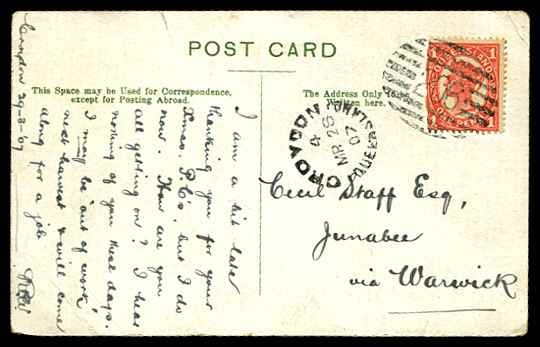 POST CARD
This Space may be Used for Correspondence,
except for Posting Abroad.
The Address Only to be
Written here.
QUEENSLAND
1
CROYDON
MR 28
07
QUEENSLAND
Croydon 29-3-07
I am a bit late
thanking you for your
Xmas. P.C's, but I do
now. How are you
all getting on? I hear
nothing of you these days.
I may be 'out of work'
next harvest & will come
along for a job
Cecil Staff Esq,
Junabee
via Warwick